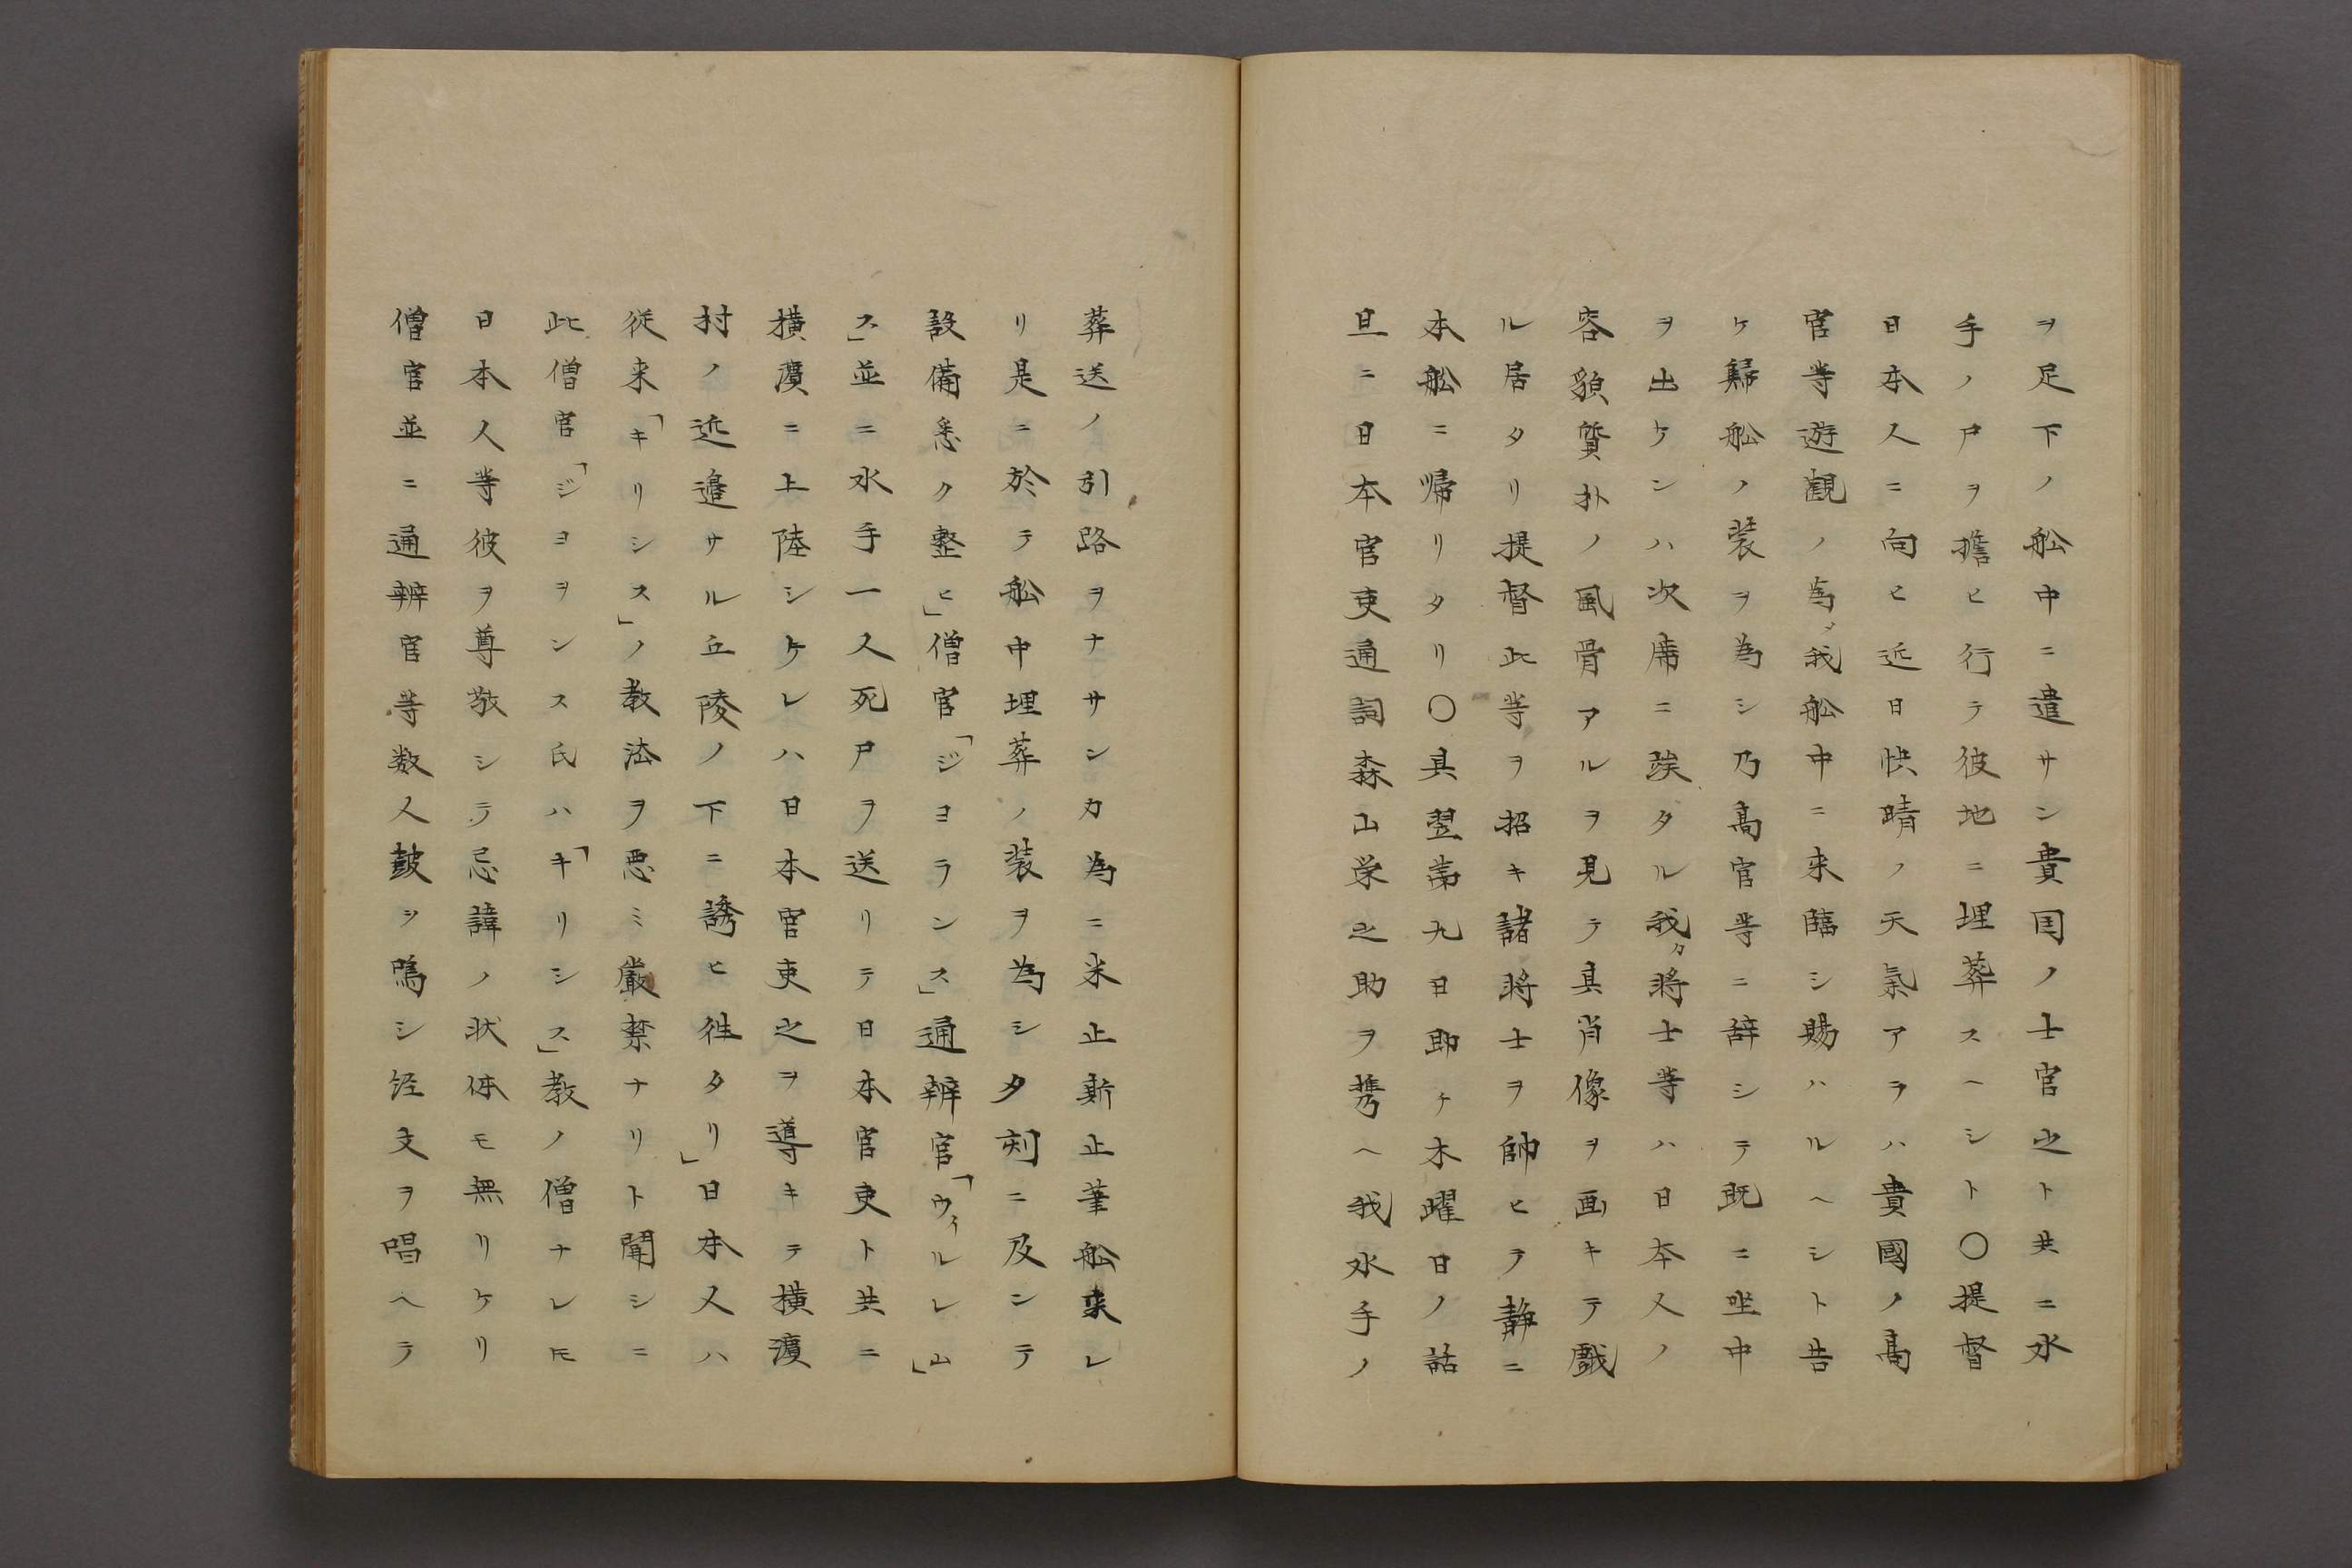 ヲ足下ノ舩中ニ遣サン貴国ノ士官之ト共ニ水
手ノ尸ヲ擔ヒ行テ彼地ニ埋葬スヘシト〇提督
日本人ニ向ヒ近日快晴ノ天氣アラハ貴國ノ髙
官等遊觀ノ為メ我舩中ニ来臨シ賜ハルヘシト告
ケ歸舩ノ装ヲ為シ乃髙官等ニ辞シテ既ニ坐中
ヲ出ケンハ次席ニ竢タル我カ将士等ハ日本人ノ
容貌質朴ノ風骨アルヲ見テ其肖像ヲ画キテ戲
ル居タリ提督此等ヲ招キ諸将士ヲ帥ヒヲ静ニ
本舩ニ帰リタリ〇其翌第九日即チ木曜日ノ詰
旦ニ日本官吏通詞森山栄之助ヲ携ヘ我水手ノ
葬送ノ引路ヲナサンカ為ニ米止斯止筆舩来レ
リ是ニ於テ舩中埋葬ノ装ヲ為シタ刻ニ及ンテ
設備悉ク整ヒ」僧官「ジヨランス」通辨官「ウイルレム」
ス」並ニ水手一人死尸ヲ送リテ日本官吏ト共ニ
横濱ニ上陸シケレハ日本官吏之ヲ導キテ横濱
村ノ近邉サル丘陵ノ下ニ誘ヒ徃タリ」日本人ハ
従来「キリシス」ノ教法ヲ悪ミ嚴禁ナリト聞シニ
此僧官「ジヨヲンス氏ハ「キリシス」教ノ僧ナレ𪜈
日本人等彼ヲ尊敬シテ忌諱ノ状体モ無リケリ
僧官並ニ通辨官等数人鼓ヲ鳴シ経文ヲ唱ヘテ